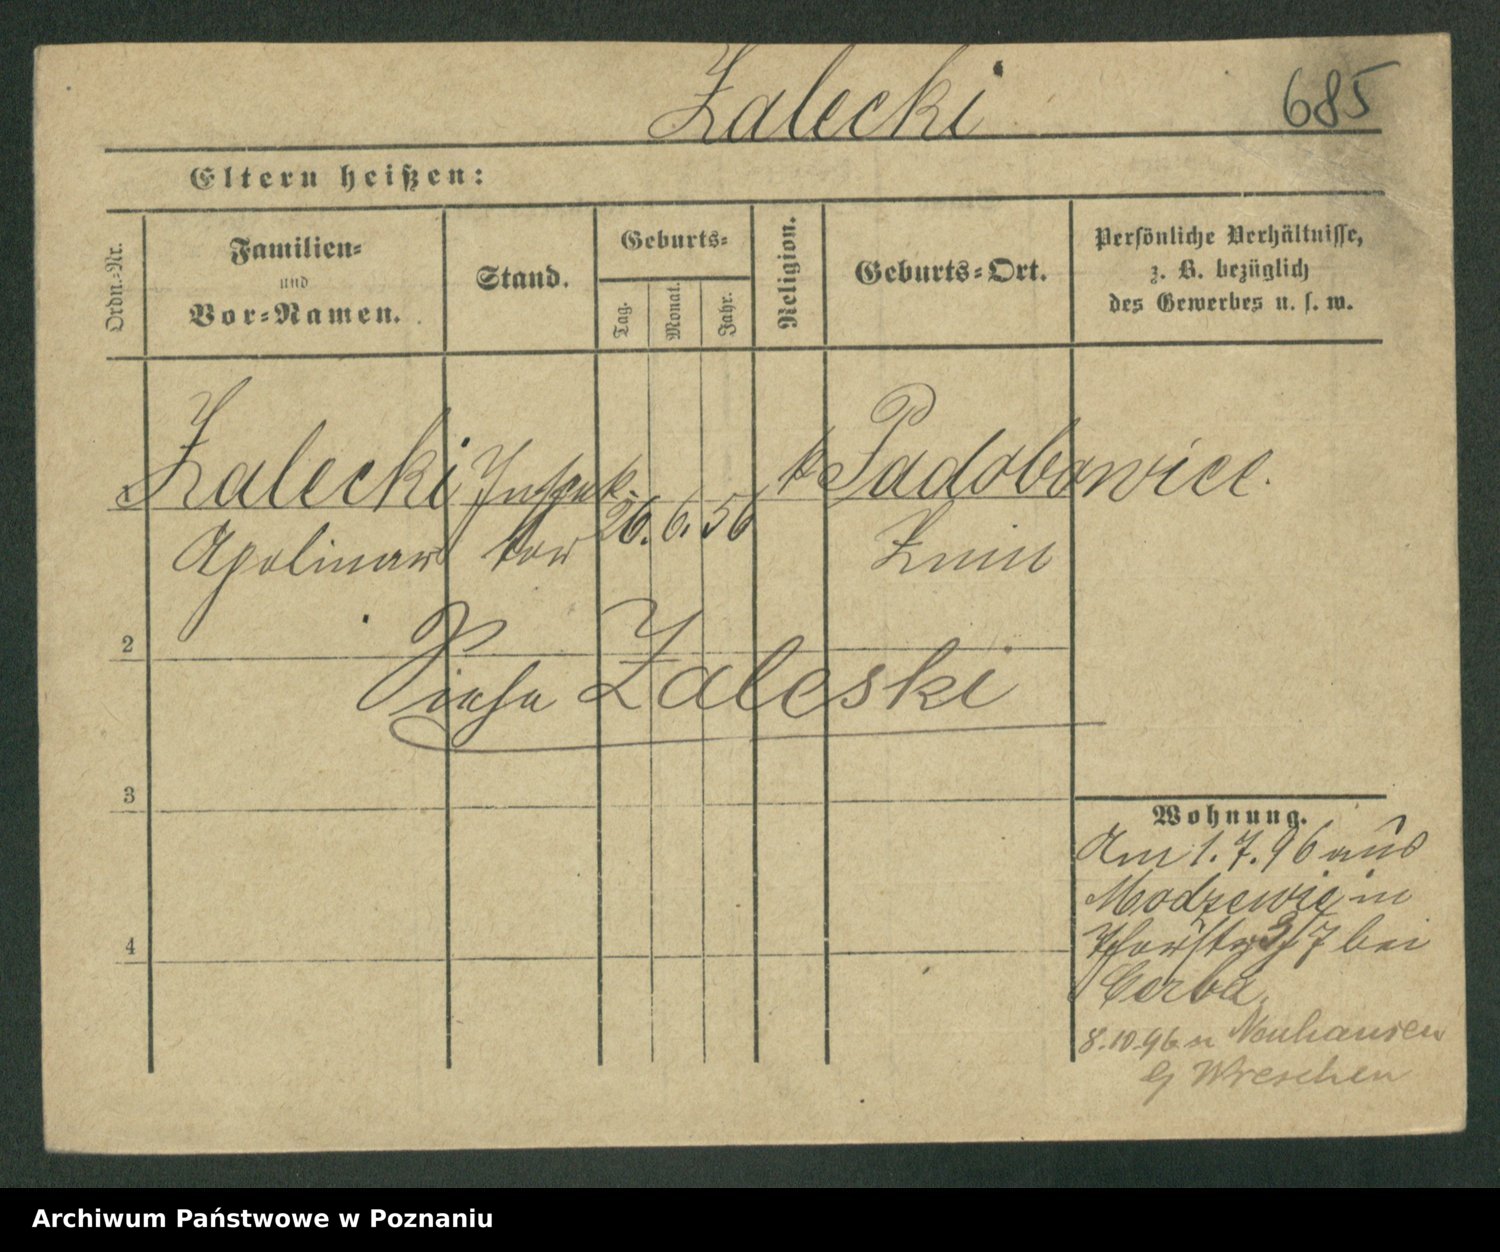 Zalecki 685
Eltern heißen:
Ordn.-Nr.
Familien-
und
Vor-Namen.
Stand.
Geburts-
Tag.
Monat.
Jahr.
Religion.
Geburts-Ort.
Persönliche Verhältnisse,
z. B. bezüglich
des Gewerbes u. s. w.
1 Zalecki Inspek- 26. 6. 56 k Padobowice.
Apolinar tor Znin
2
Siehe Zaleski
3
4
Wohnung.
Am 1.7.96 aus
Modzewie in
7 bei
Cerba.
8.10.96 n Neuhausen
Wreschen
Archiwum Państwowe w Poznaniu